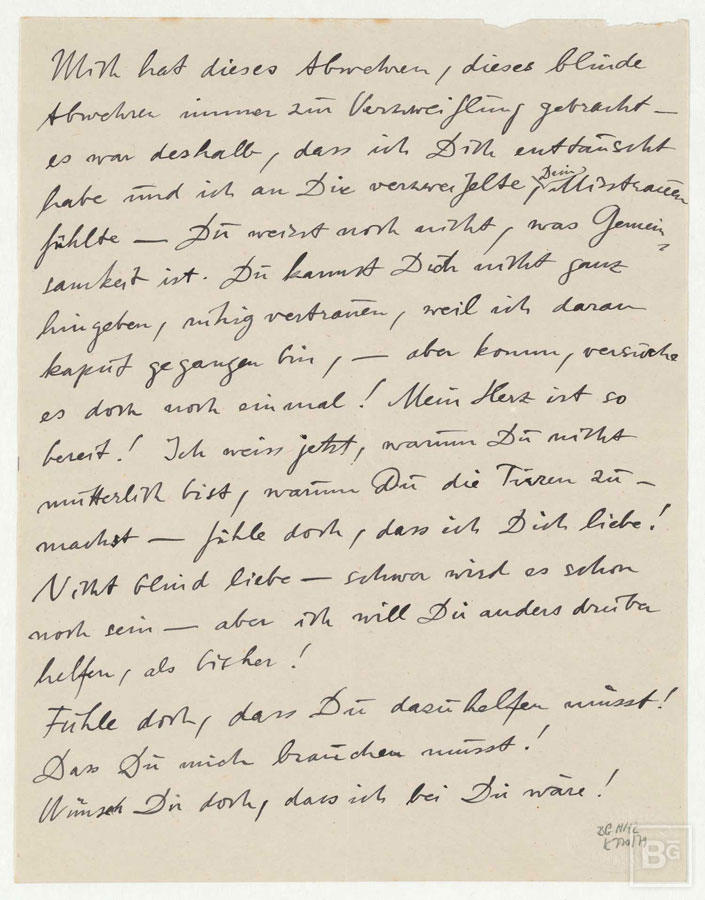 Mich hat dieses Abwehren, dieses blinde
Abwehren immer zur Verzweiflung gebracht —
es war deshalb, dass ich Dich enttäuscht
habe und ich an Dir verzweifelte, Dein Misstrauen
fühlte — Du weisst noch nicht, was Gemein-
samkeit ist. Du kannst Dich nicht ganz
hingeben, ruhig vertrauen, weil ich daran
kaput gegangen bin, — aber komm, versuche
es doch noch einmal! Mein Herz ist so
bereit! Ich weiss jetzt, warum Du nicht
mütterlich bist, warum Du die Türen zu-
machst — fühle doch, dass ich Dich liebe!
Nicht blind liebe — schwer wird es schon
noch sein — aber ich will Dir anders drüber
helfen, als bisher!
Fühle doch, dass Du dazu helfen musst!
Dass Du mich brauchen musst!
Wünsch Dir doch, dass ich bei Dir wäre!
BG